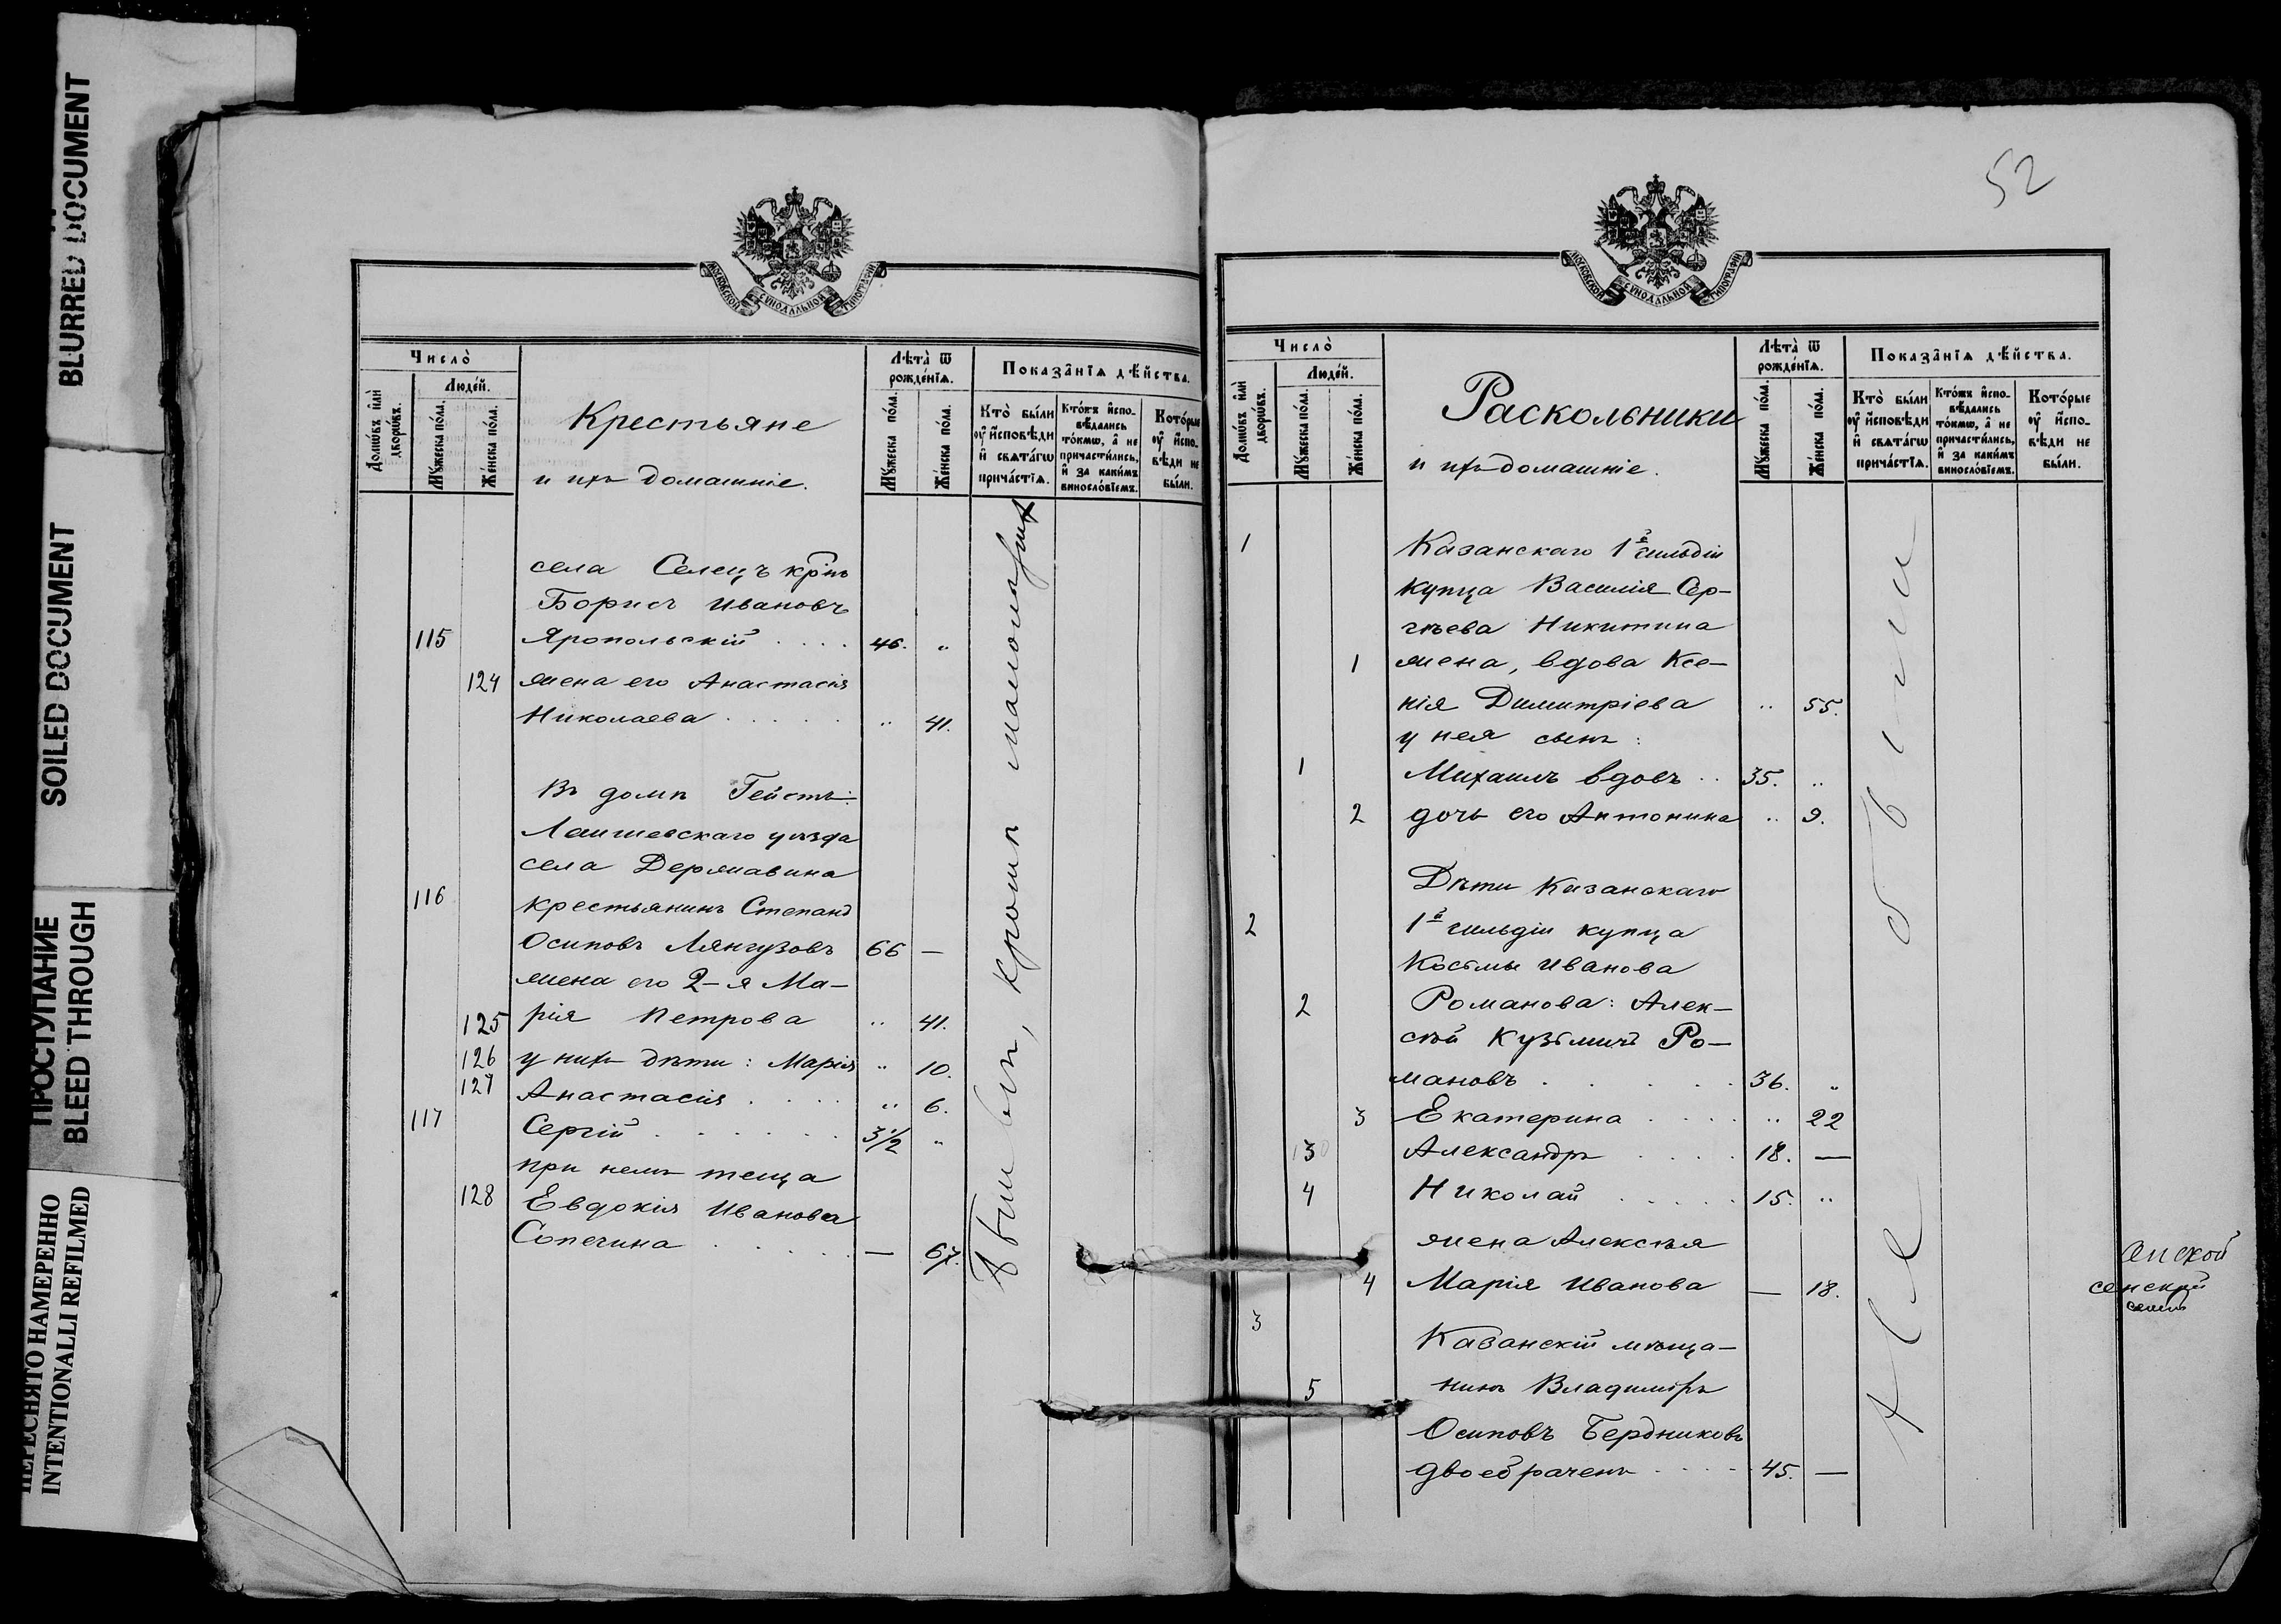 BLURRED DOCUMENT
SOILED DOCUMENT
ПРОСТУПАНИЕ
BLEED THROUGH
ПЕРЕСНЯТО НАМЕРЕННО
INTENTIONALLI REFILMED
МОСКОВСКОЙ СѴНОДАЛЬНОЙ ТИПОГРАФІИ
Число̀
Домо́въ и҆лѝ дворо́въ.
Люде́й.
Мꙋ́жеска по́ла.
Же́нска по́ла.
Крестьяне
и ихъ домашніе.
Лѣта̀ ѿ рожде́нїѧ.
Мꙋ́жеска по́ла.
Же́нска по́ла.
Показа̂нїѧ дѣ́йства.
Кто̀ бы́ли ᲂу҆ и҆сповѣ́ди и҆ свѧта́гѡ прича́стїѧ.
Кто́жъ и҆сповѣ́дались то́кмѡ, а҆ не причасти́лись, и҆ за каки́мъ виносло́вїемъ.
Кото́рые ᲂу҆ и҆сповѣ́ди не бы́ли.
села Селецъ кр̃нъ
Борисъ Ивановъ
115 Яропольскій .... 46. „
124 жена его Анастасія
Николаева ..... „ 41.
Въ домѣ Гейстъ:
Лаишевскаго уѣзда
села Державина
116 крестьянинъ Степанъ
Осиповъ Лянгузовъ 66 —
жена его 2-я Ма-
125 рія Петрова „ 41.
126 у нихъ дѣти: Марія „ 10.
127 Анастасія .... „ 6.
117 Сергій ...... 3½ „
при немъ теща
128 Евдокія Иванова
Сопечина ..... — 67.
Были всѣ, кромѣ малолѣтн
52
МОСКОВСКОЙ СѴНОДАЛЬНОЙ ТИПОГРАФІИ
Число̀
Домо́въ и҆лѝ дворо́въ.
Люде́й.
Мꙋ́жеска по́ла.
Же́нска по́ла.
Раскольники
и ихъ домашніе.
Лѣта̀ ѿ рожде́нїѧ.
Мꙋ́жеска по́ла.
Же́нска по́ла.
Показа̂нїѧ дѣ́йства.
Кто̀ бы́ли ᲂу҆ и҆сповѣ́ди и҆ свѧта́гѡ прича́стїѧ.
Кто́жъ и҆сповѣ́дались то́кмѡ, а҆ не причасти́лись, и҆ за каки́мъ виносло́вїемъ.
Кото́рые ᲂу҆ и҆сповѣ́ди не бы́ли.
1 Казанскаго 1й гильдіи
купца Василія Сер-
гѣева Никитина
1 жена, вдова Ксе-
нія Димитріева „ 55.
у нея сынъ:
1 Михаилъ вдовъ .. 35. „
2 дочь его Антонина „ 9.
Дѣти Казанскаго
2 1й гильдіи купца
Косьмы Иванова
2 Романова: Алек-
сѣй Кузьмичъ Ро-
мановъ ...... 36. „
3 Екатерина .... „ 22
3 Александръ .... 18. —
4 Николай ..... 15. „
жена Алексѣя
4 Марія Иванова — 18.
3 Казанскій мѣща-
5 нинъ Владиміръ
Осиповъ Бердниковъ
двоебраченъ .... 45. —
Не были